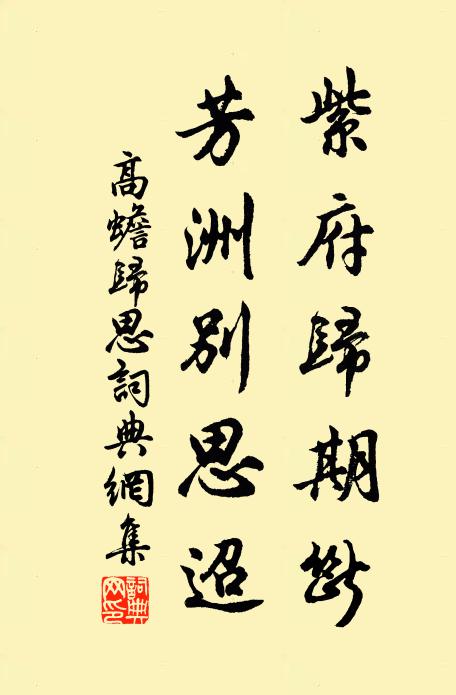 紫府歸期斷
芳洲別思迢
高蟾歸思詞典網集
詞典網印